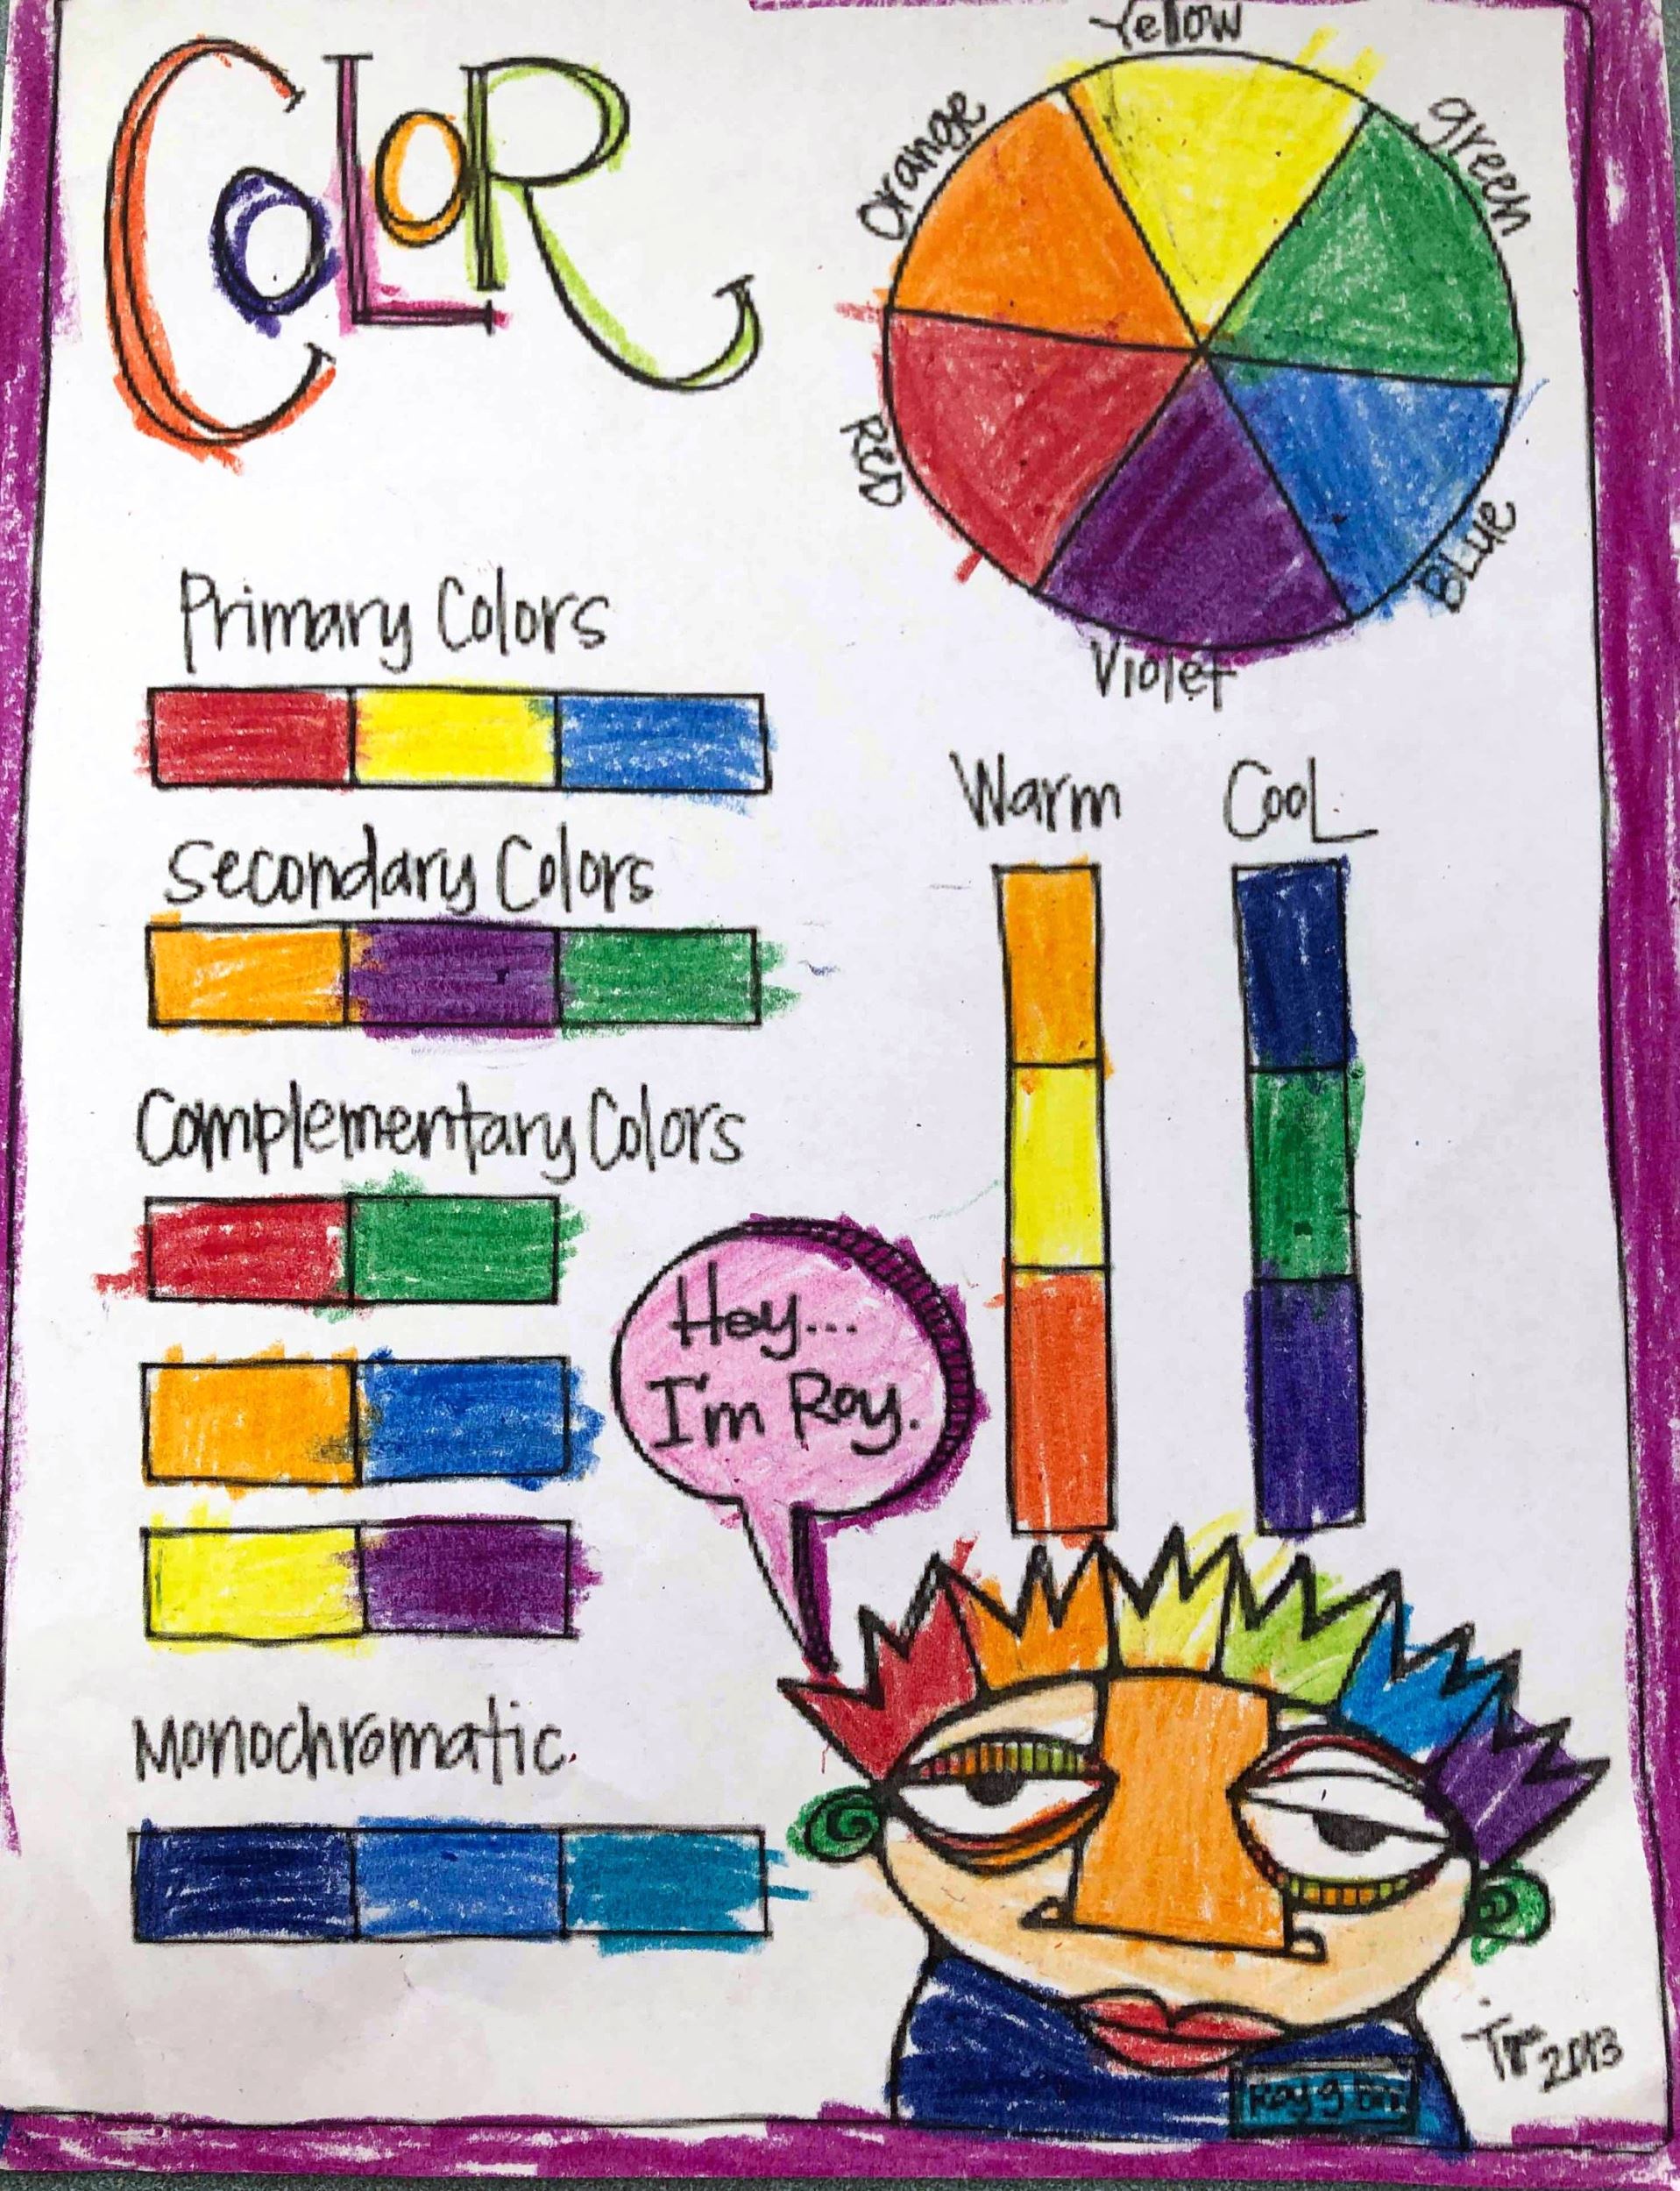 Color
Yellow
Orange
green
Red
Blue
Violet
Primary Colors
Secondary Colors
Complementary Colors
Monochromatic
Warm
Cool
Hey...
I'm Roy.
2013
Roy g Biv